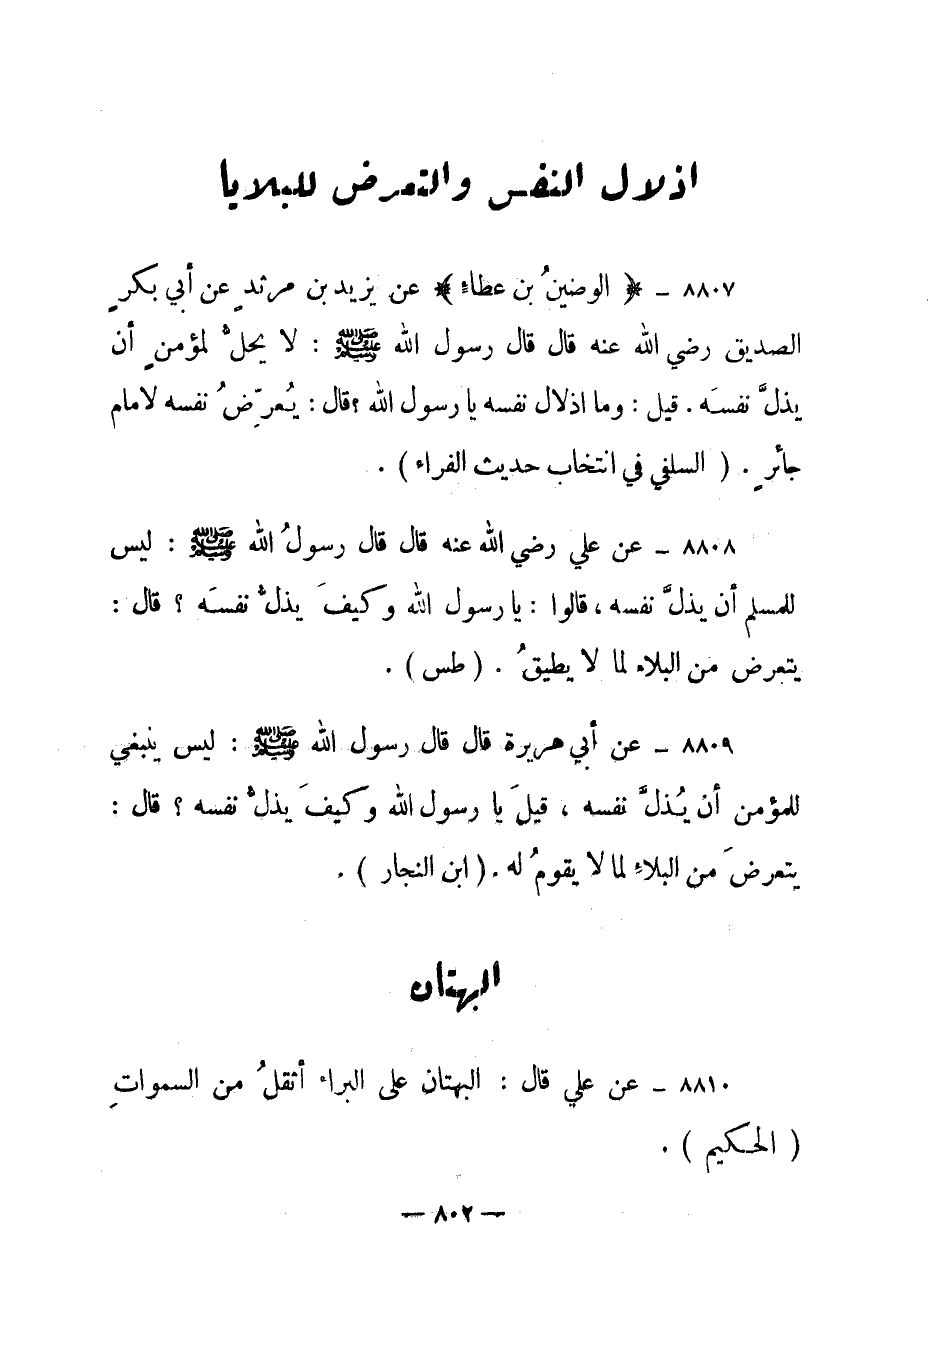 اذلال النفس والتعرض للبلايا
٨٨٠٧ ـ ﴿ الوضينُ بن عطاءٍ ﴾ عن يزيد بن مرثدٍ عن أبي بكرٍ
الصديق رضي الله عنه قال قال رسول الله ﷺ : لا يحلُّ لمؤمنٍ أن
يذلَّ نفسَه . قيل : وما اذلال نفسه يا رسول الله ؟ قال : يُعرِّضُ نفسه لامام
جائرٍ . ( السلفي في انتخاب حديث الفراء ) .
٨٨٠٨ ـ عن علي رضي الله عنه قال قال رسولُ الله ﷺ : ليس
للمسلم أن يذلَّ نفسه ، قالوا : يا رسول الله وكيفَ يذلُّ نفسَه ؟ قال :
يتعرض من البلاء لما لا يطيقُ . ( طس ) .
٨٨٠٩ ـ عن أبي هريرة قال قال رسول الله ﷺ : ليس ينبغي
للمؤمن أن يُذلَّ نفسه ، قيلَ يا رسول الله وكيفَ يذلُّ نفسه ؟ قال :
يتعرضَ من البلاءِ لما لا يقومُ له . ( ابن النجار ) .
البهتان
٨٨١٠ ـ عن علي قال : البهتان على البراء أثقلُ من السمواتِ
( الحكيم ) .
— ٨٠٢ —